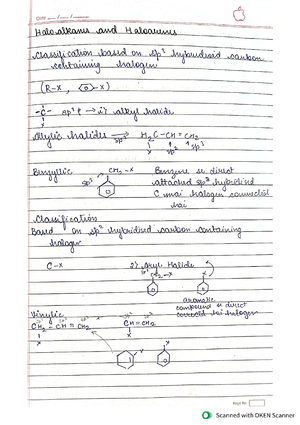 Date
Haloalkanes and Haloarenes
Classification based on sp³ hybridised carbon
containing halogen
(R-X, -X)
-C- sp³ → alkyl halide
Allylic halides sp³ H₂C-CH=CH₂
X sp² sp²
Benzyllic CH₂-X Benzene se direct
sp³ attached sp³ hybridised
C mai halogen connected
hai
Classification
Based on sp² hybridised carbon containing
halogen
C-X Aryl Halide
aromatic
compound se direct
connected hai halogen
Vinylic
CH₂-CH=CH₂ CH=CH₂
X X
X X
Page No.
Scanned with OKEN Scanner